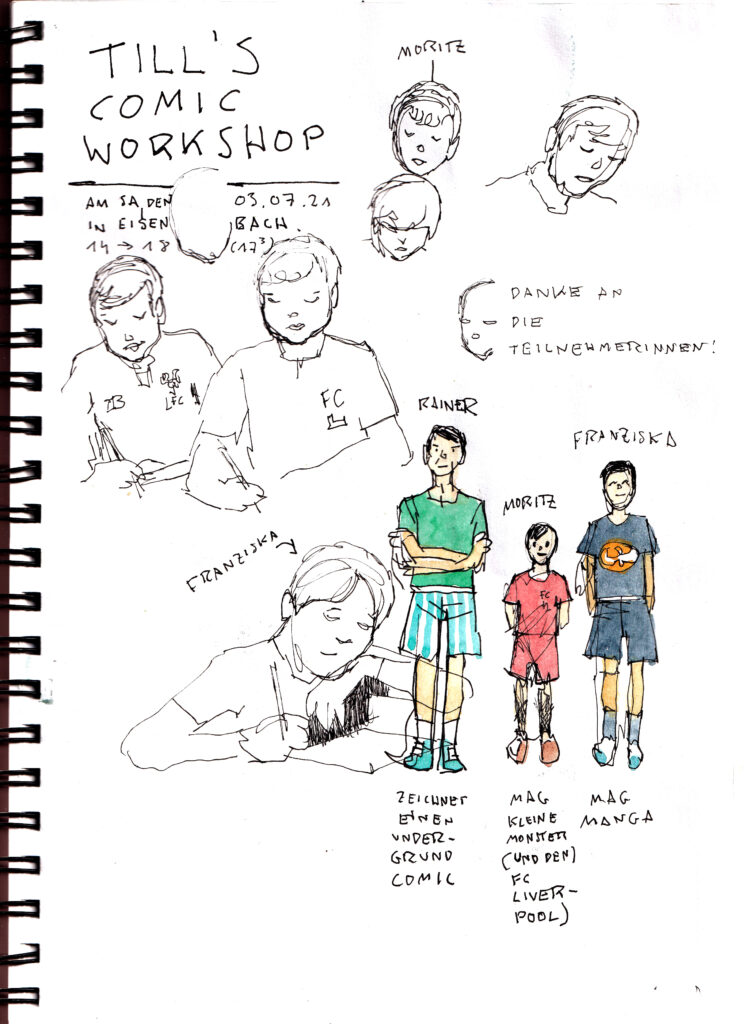 TILL'S
COMIC
WORKSHOP
AM SA, DEN 03.07.21
IN EISEN BACH.
14 → 18 (17³)
MORITZ
DANKE AN
DIE
TEILNEHMERINNEN!
FC
LFC
FC
L
RAINER
MORITZ
FRANZISKA
FC
L
FRANZISKA
ZEICHNET
EINEN
UNDER-
GRUND
COMIC
MAG
KLEINE
MONSTER
(UND DEN)
FC
LIVER-
POOL)
MAG
MANGA